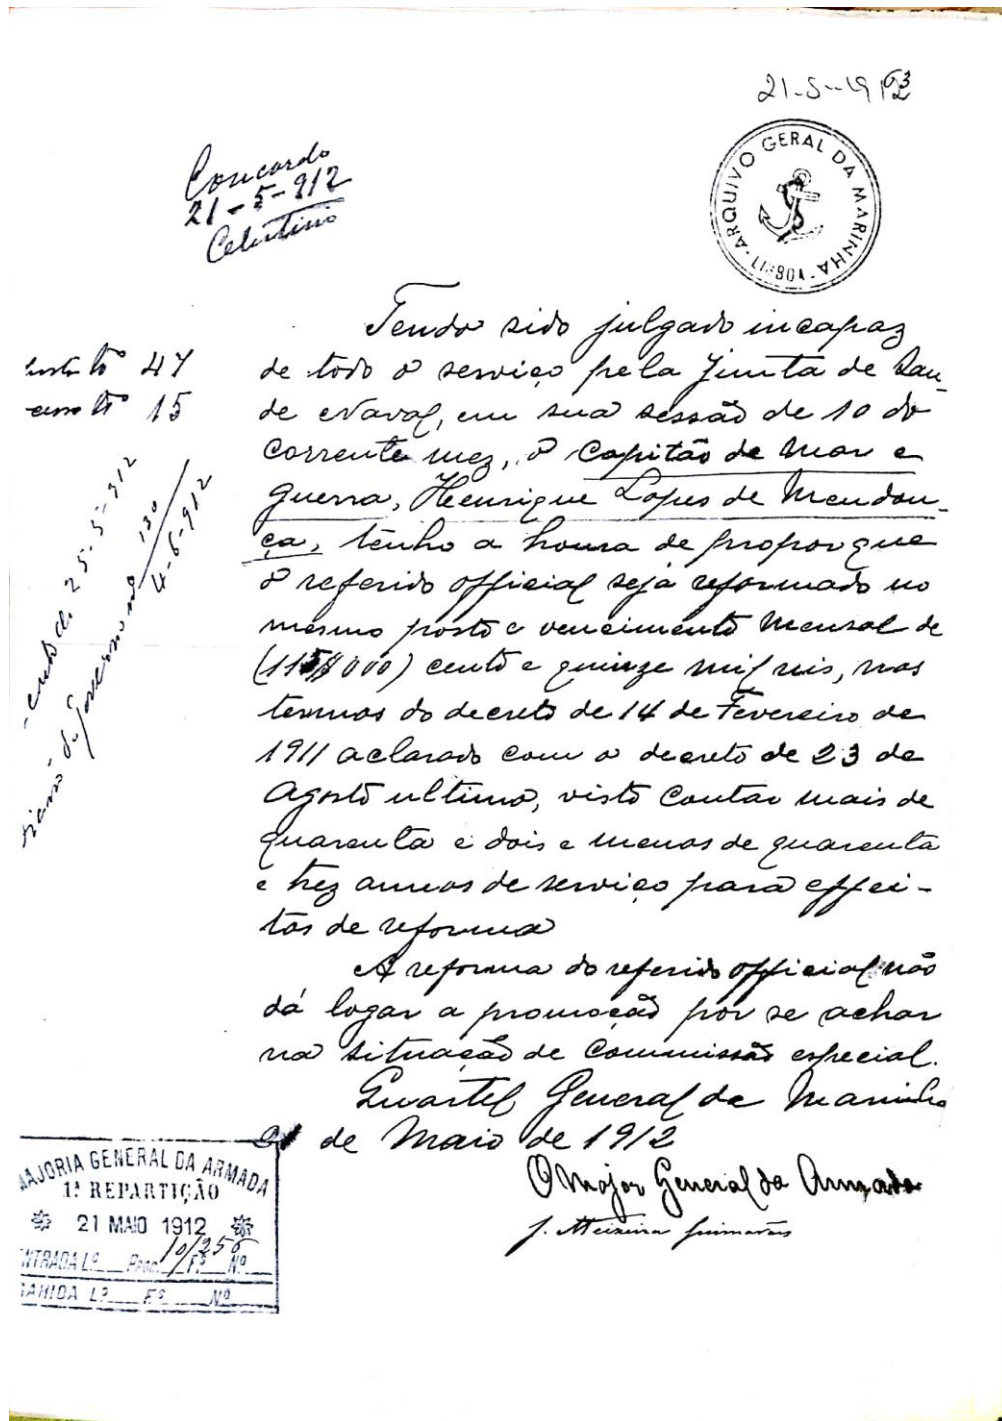 21-5-1912
Concordo
21-5-912
Celestino
ARQUIVO GERAL DA MARINHA · LISBOA ·
47
15
25-5-912
do governo nº 130
4-6-912
Tendo sido julgado incapaz
de todo o serviço pela Junta de Sau-
de Naval, em sua sessão de 10 do
corrente mez, o Capitão de Mar e
Guerra, Henrique Lopes de Mendon-
ça, tenho a honra de propor que
o referido official seja reformado no
mesmo posto e vencimento mensal de
(115$000) cento e quinze mil reis, nos
termos do decreto de 14 de Fevereiro de
1911 aclarado com o decreto de 23 de
Agosto ultimo, visto contar mais de
quarenta e dois e menos de quarenta
e trez annos de serviço para effei-
tos de reforma
A reforma do referido official não
dá logar a promoção por se achar
na situação de Commissão especial.
Quartel General da Marinha
21 de Maio de 1912
O Major General da Armada
J. Teixeira Guimarães
MAJORIA GENERAL DA ARMADA
1ª REPARTIÇÃO
21 MAIO 1912
ENTRADA Lº Proc. 10/256 Fº Nº
SAHIDA Lº Fº Nº